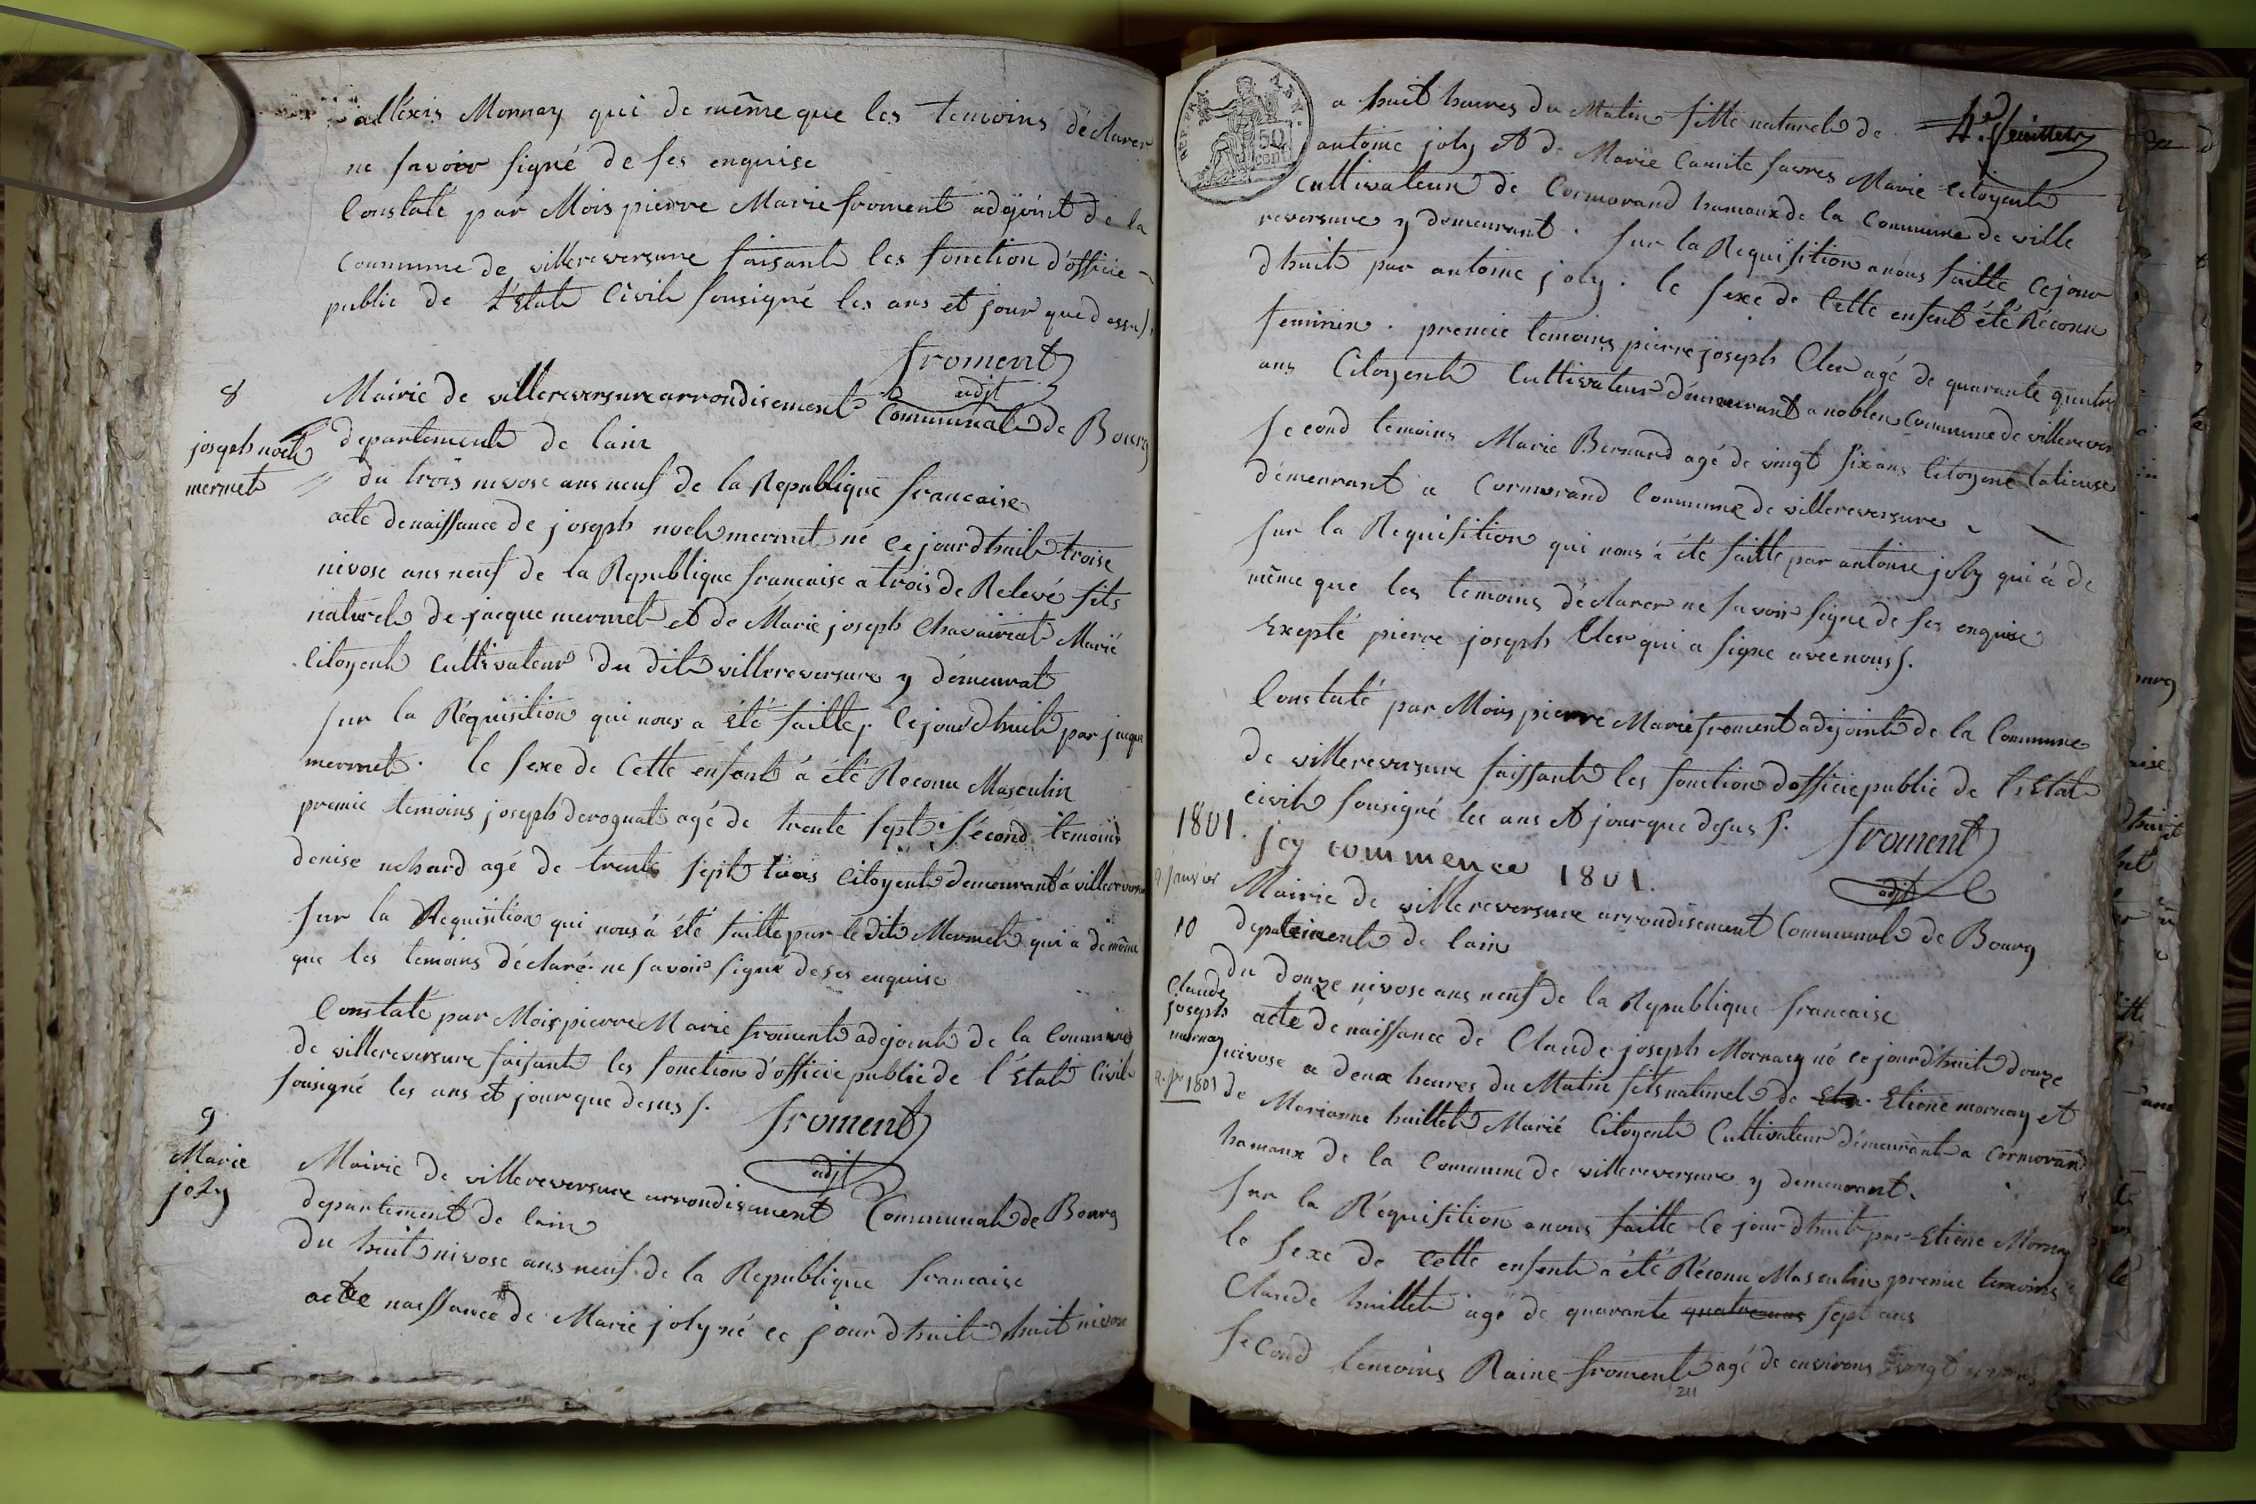 alléxis Mornay qui de même que les temoins déclarer
ne savoir signé de ses enquise
Constaté par Mois pierre Marie froment adejoint de la
Commune de villereversure faisant les fonction d'officie
public de L'Etat Civil sousigné les ans et jour que dessus
froment
adjt
8
joseph noel
mermet
Mairie de villereversure arrondisement Communal de Bourg
departement de lain
du trois nivose ans neuf de la Republique francaise
acte denaissance de joseph noel mermet né ce jourdhuit troise
nivose ans neuf de la Republique francaise a trois de Relevé fils
naturel de jacque mermet et de Marie joseph Chavairiat Marié
Citoyent Cultivateur du dit villereversure y démeurat
sur la Réquisition qui nous a été faitte, Cejourdhuit par jacque
mermet. le sexe de Cette enfant à été Reconu Masculin
premie temoins joseph deroguat agé de trente sept. sécond temoins
denise nehard agé de trente sept tous Citoyent demeurant à villereversure
sur la Requisition qui nous à été faitte par le dit Mermet qui a de même
que les temoins déclaré ne savoir signé de ses enquise
Constaté par Mois pierre Marie froment adejoint de la Commune
de villereversure faisant les fonction d'officie public de l'état Civil
sousigné les ans et jour que desus s.
froment
adjt
9
Marie
joly
Mairie de villereversure arrondisement Communal de Bourg
departement de lain
Du huit nivose ans neuf de la Republique francaise
acte naissance de Marie joly né ce jour dhuit huit nivose
REP. FRA.
50
cent.
4e feuillet
a huit heures du Matin fille naturel de
antoine joly et de Marie Camite favres Marié Citoyent
Cultivateur de Cormorand hamaux de la Commune de ville
reversure y demeurant. sur la Requisition anous faitte Cejour
dhuit par antoine joly. le sexe de Cette enfent été Réconu
feminin. premie temoins pierre joseph Cler agé de quarante quatre
ans Citoyent Cultivateur démeurant a noblen Commune de villerever
second temoins Marie Bernard agé de vingt six ans Citoyent
démeurant a Cormorand Commune de villereversure
sur la Requisition qui nous à été faitte par antoine joly qui à de
même que les temoins déclarer ne savoir signe de ses enquise
Exepté pierre joseph Cler qui a signe avec nous s.
Constaté par Mois pierre Marie froment adejoint de la Commune
de villereversure faissant les fonction dofficie public de l'Etat
civil sousigné les ans et jour que desus s.
froment
adjt
1801. jcy commence 1801.
2 janvier
10
Claude
joseph
mornay
2 jer 1801
Mairie de villereversure arrondisement Communal de Bourg
departement de lain
du douze nivose ans neuf de la Republique francaise
acte de naissance de Claude joseph Mornay né ce jourdhuit douze
nivose a deux heures du Matin fils naturel de Etiene mornay et
de Marianne huillet Marié Citoyent Cultivateur démeurent a Cormorand
hamaux de la Commune de villereversure y demeurant.
sur la Réquisition anous faitte Ce jour dhuit par Etiene Mornay
le sexe de Cette enfent à été Réconu Masculin premie temoins
Claude huillet agé de quarante quatre ans sept ans
second temoins Raine froment agé de environs vingt
211